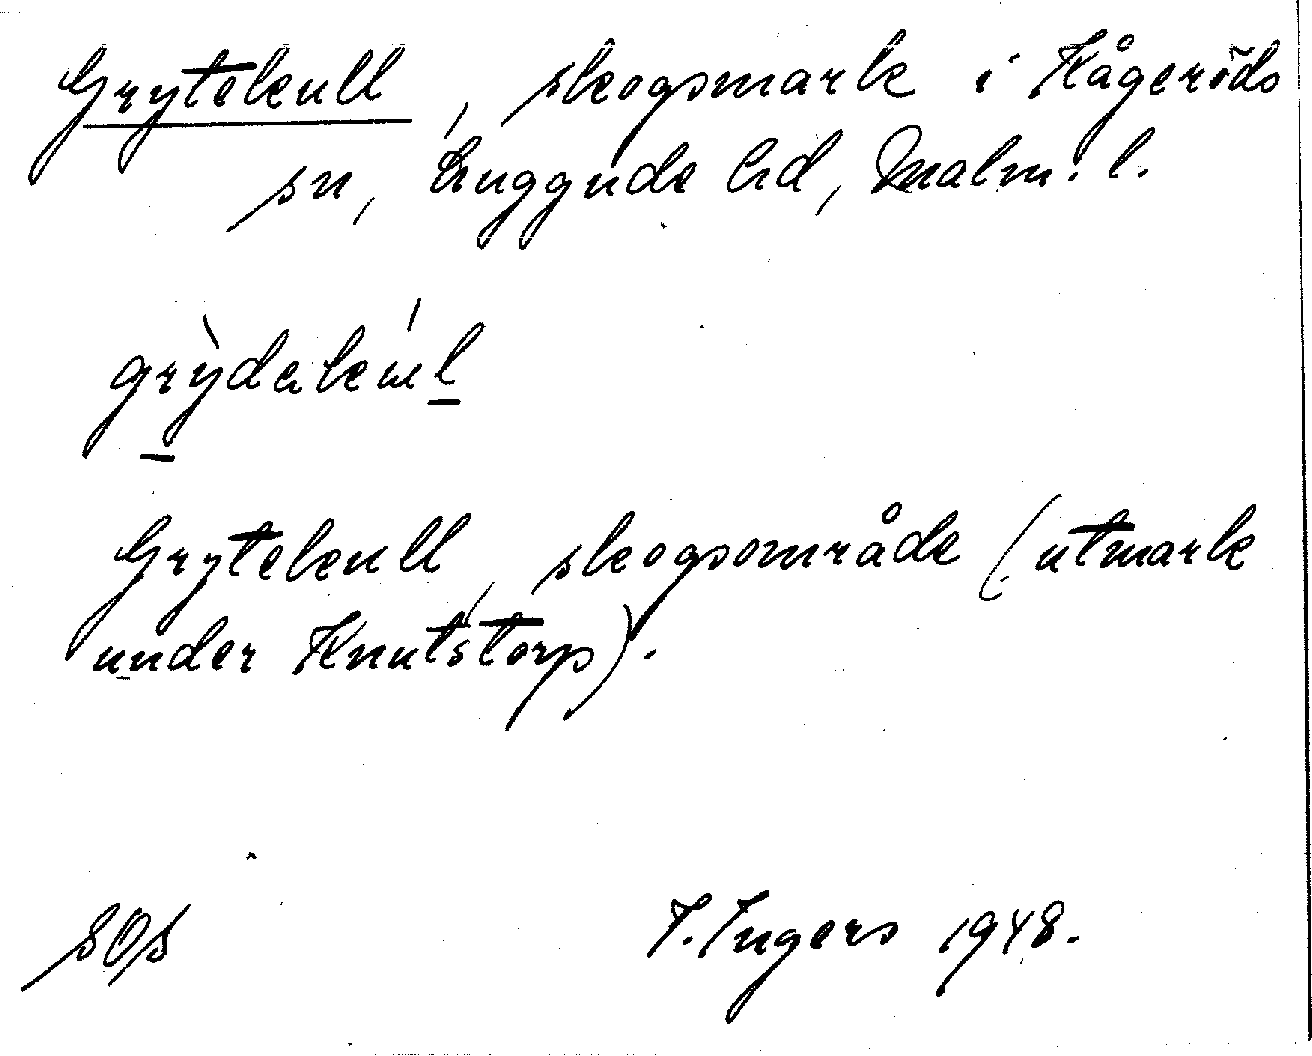 Grytekull, skogsmark i Kågeröds
sn, Luggude hd, Malm. l.
grỳdəkul
Grytekull, skogsområde (utmark
under Knutstorp).
I. Ingers 1948.